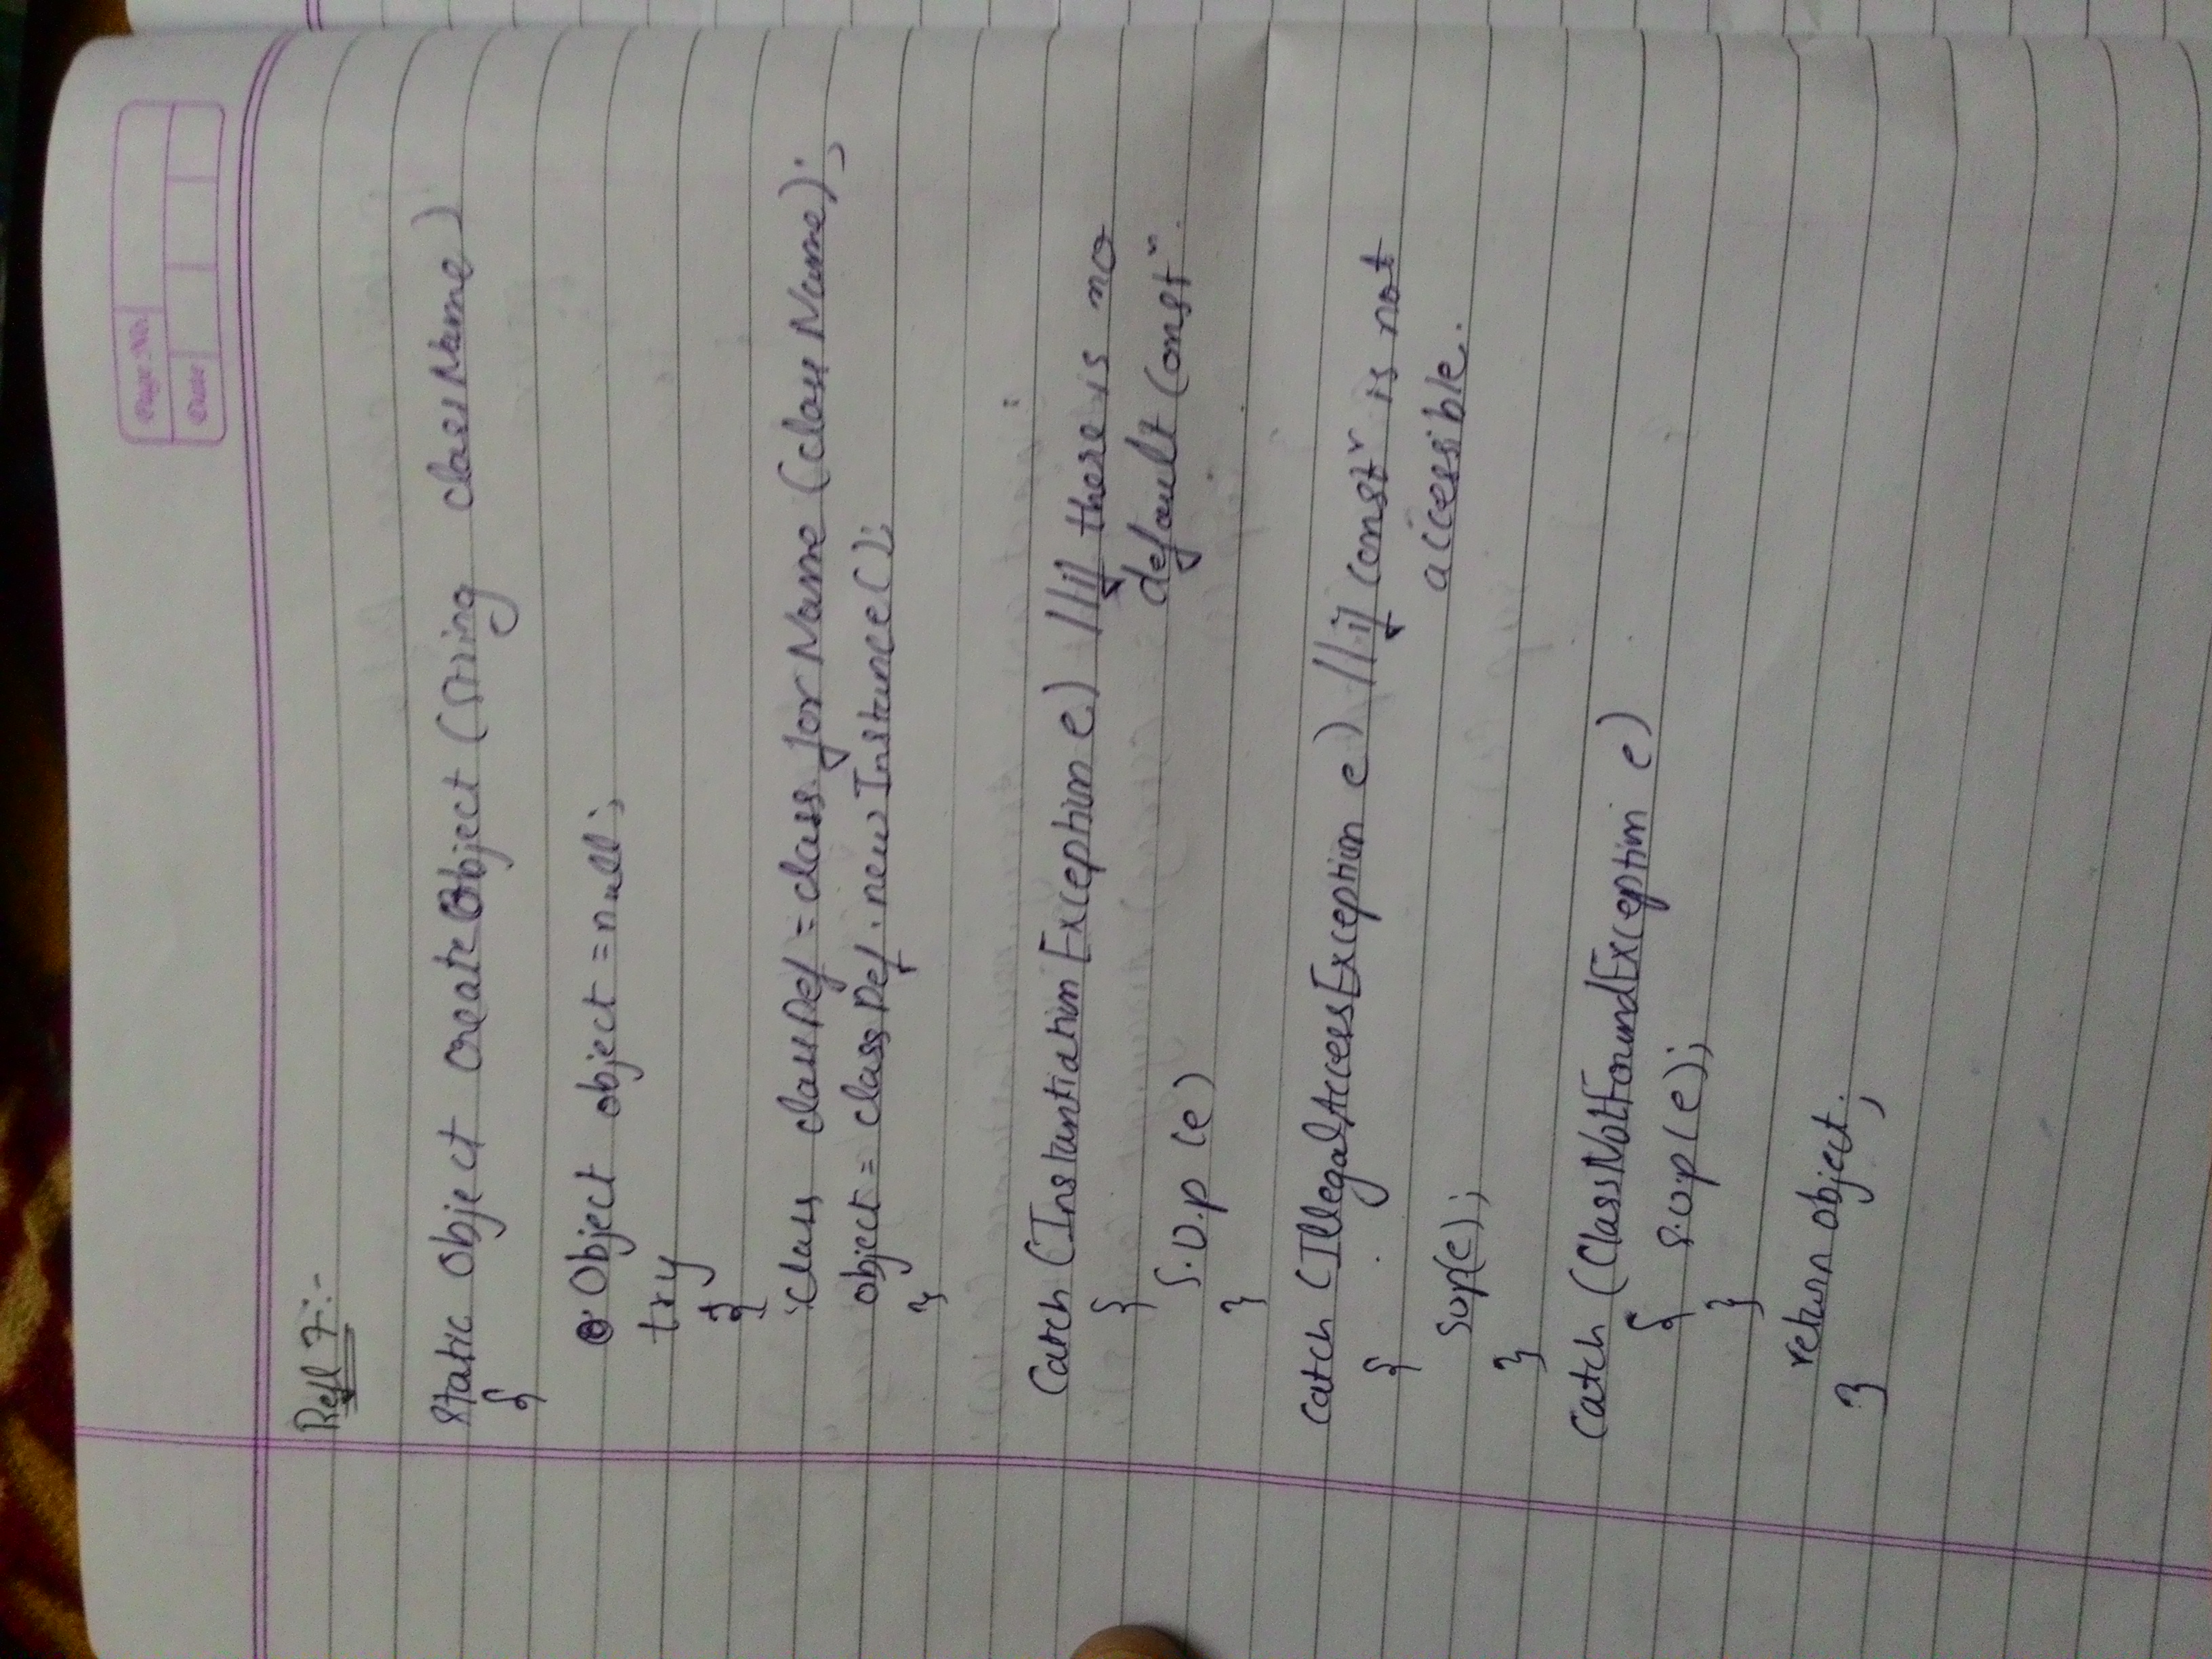 Page No.
Date
Refl 7:-
Static Object createObject (String className)
{
Object object = null;
try
{
class classDef = class.forName (className);
object = classDef.newInstance();
}
Catch (Instantiation Exception e) //if there is no
default Constr.
{
S.O.p (e)
}
Catch (IllegalAccessException e) //if constr is not
accessible.
{
Sop(e);
}
Catch (ClassNotFoundException e)
{ S.O.p(e);
}
return object;
}